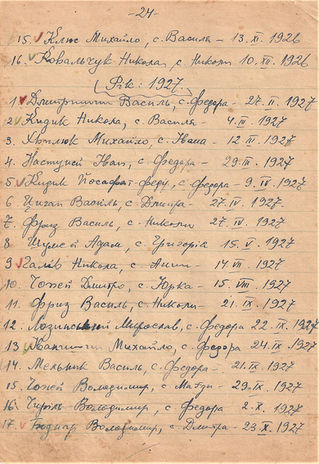 -24-
15. Клюс Михайло, с. Василь - 13. XI. 1926
16. Ковальчук Никола, с. Николи 10. XII. 1926
(Рік: 1927.)
1. Василь с. Федора - 27. II. 1927
2. Кидик Никола, с. Василя 4. III. 1927
3. Михайло, с. Івана - 12. III. 1927
4. Іван, с. Федора - 29. III. 1927
5. Кидик Йосафат-Федір, с. Федора - 9. IV. 1927
6. Циган Василь, с. Дмитра - 27. IV. 1927
7. Фриз Василь, с. Николи 27. IV. 1927
8. Адам, с. Григорія 15. V. 1927
9. Галів Никола, с. Анни - 14 VII. 1927
10. Чожей Дмитро, с. Юрка 15. VIII. 1927
11. Фриз Василь, с. Николи - 21. IX. 1927
12. Лозинський Мирослав, с. Федора 22. IX. 1927
13. Михайло, с. Федора 24. IX. 1927
14. Мельник Василь, с. Федора - 21. IX. 1927
15. Чожей Володимир, с. - 29. IX. 1927
16. Володимир, с. Федора - 2. X. 1927
17. Боднар Володимир, с. Дмитра - 23 X. 1927